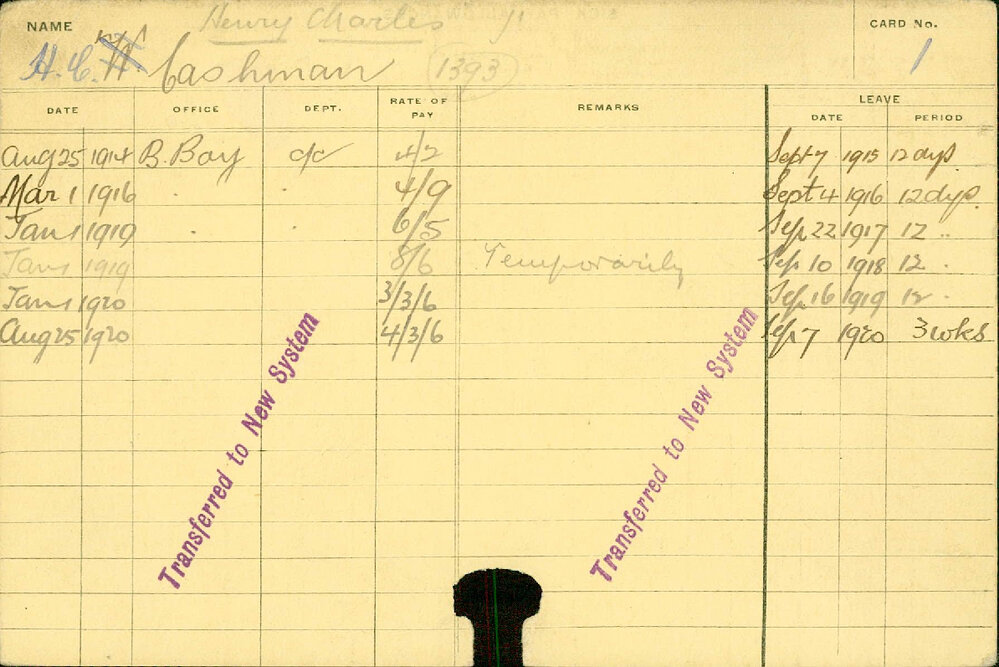 NAME Henry Charles CARD No.
H.C. Cashman 1393 1
DATE OFFICE DEPT. RATE OF PAY REMARKS LEAVE DATE PERIOD
Aug 25 1914 B. Bay c/c 4/2 Sept 7 1915 12 dys
Mar 1 1916 " " 4/9 Sept 4 1916 12 dys.
Jan 1 1919 " " 6/5 Sep 22 1917 12 "
Jan 1 1919 8/6 Temporarily Sep 10 1918 12 "
Jan 1 1920 3/3/6 Sep 16 1919 12 "
Aug 25 1920 4/3/6 Sep 7 1920 3 wks
Transferred to New System
Transferred to New System